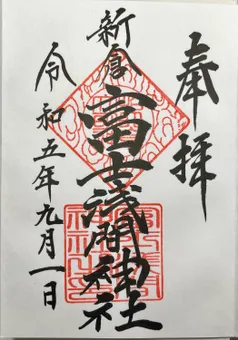 奉拝
新倉
富士浅間神社
令和五年九月一日